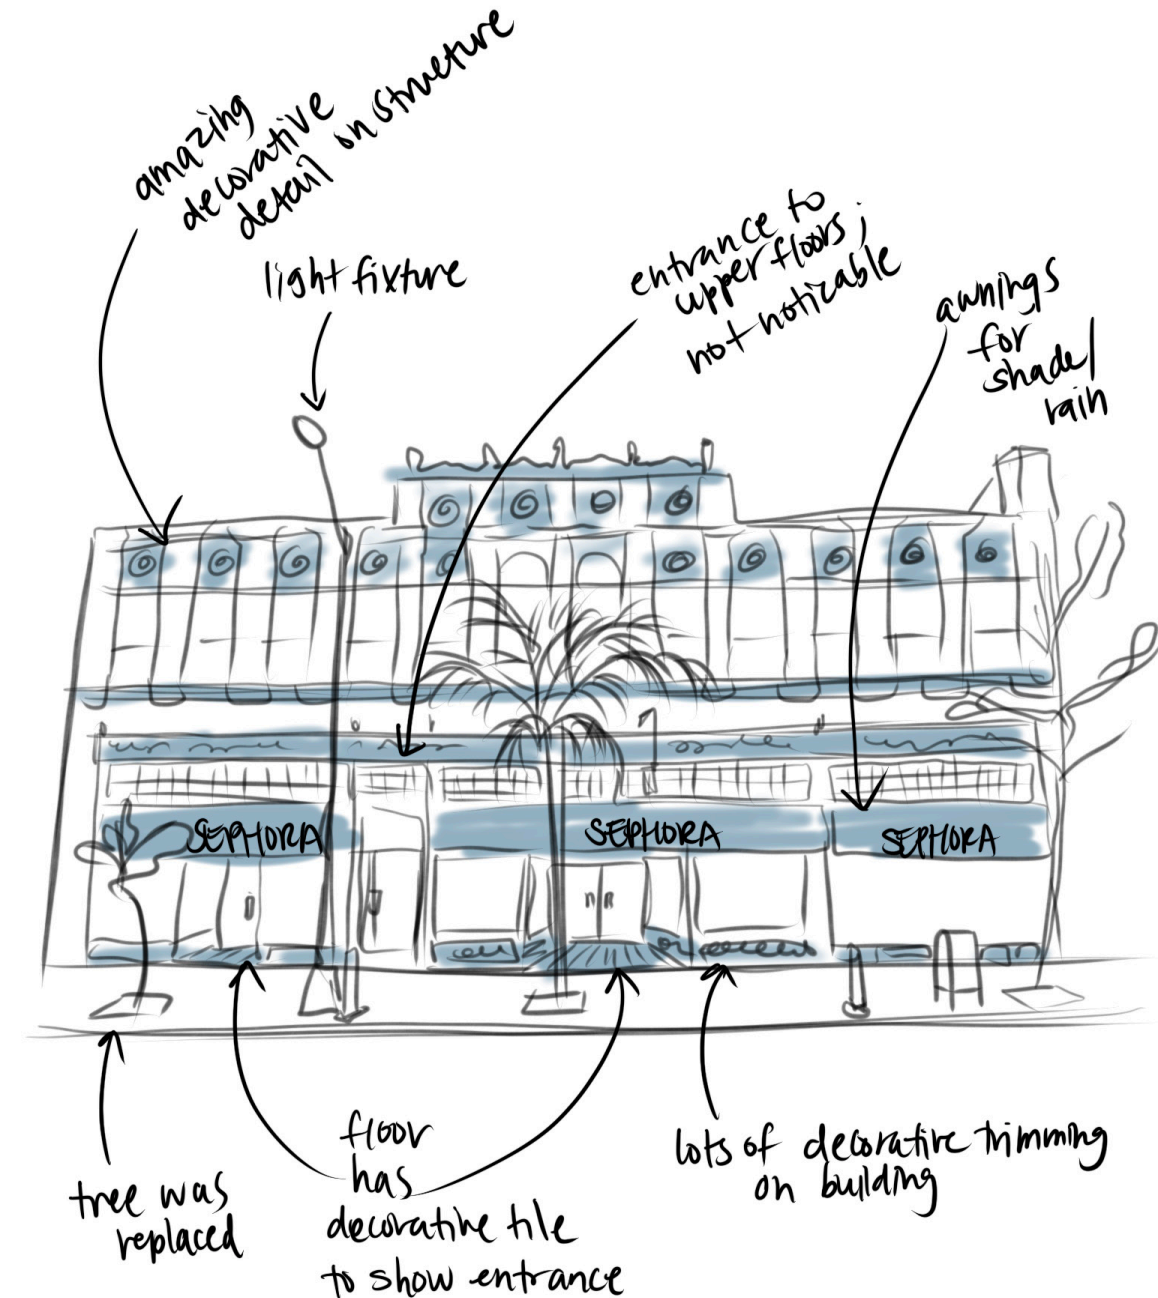 amazing
decorative
detail on structure
light fixture
entrance to
upper floors;
not noticable
awnings
for
shade/
rain
SEPHORA
SEPHORA
SEPHORA
tree was
replaced
floor
has
decorative tile
to show entrance
lots of decorative trimming
on building